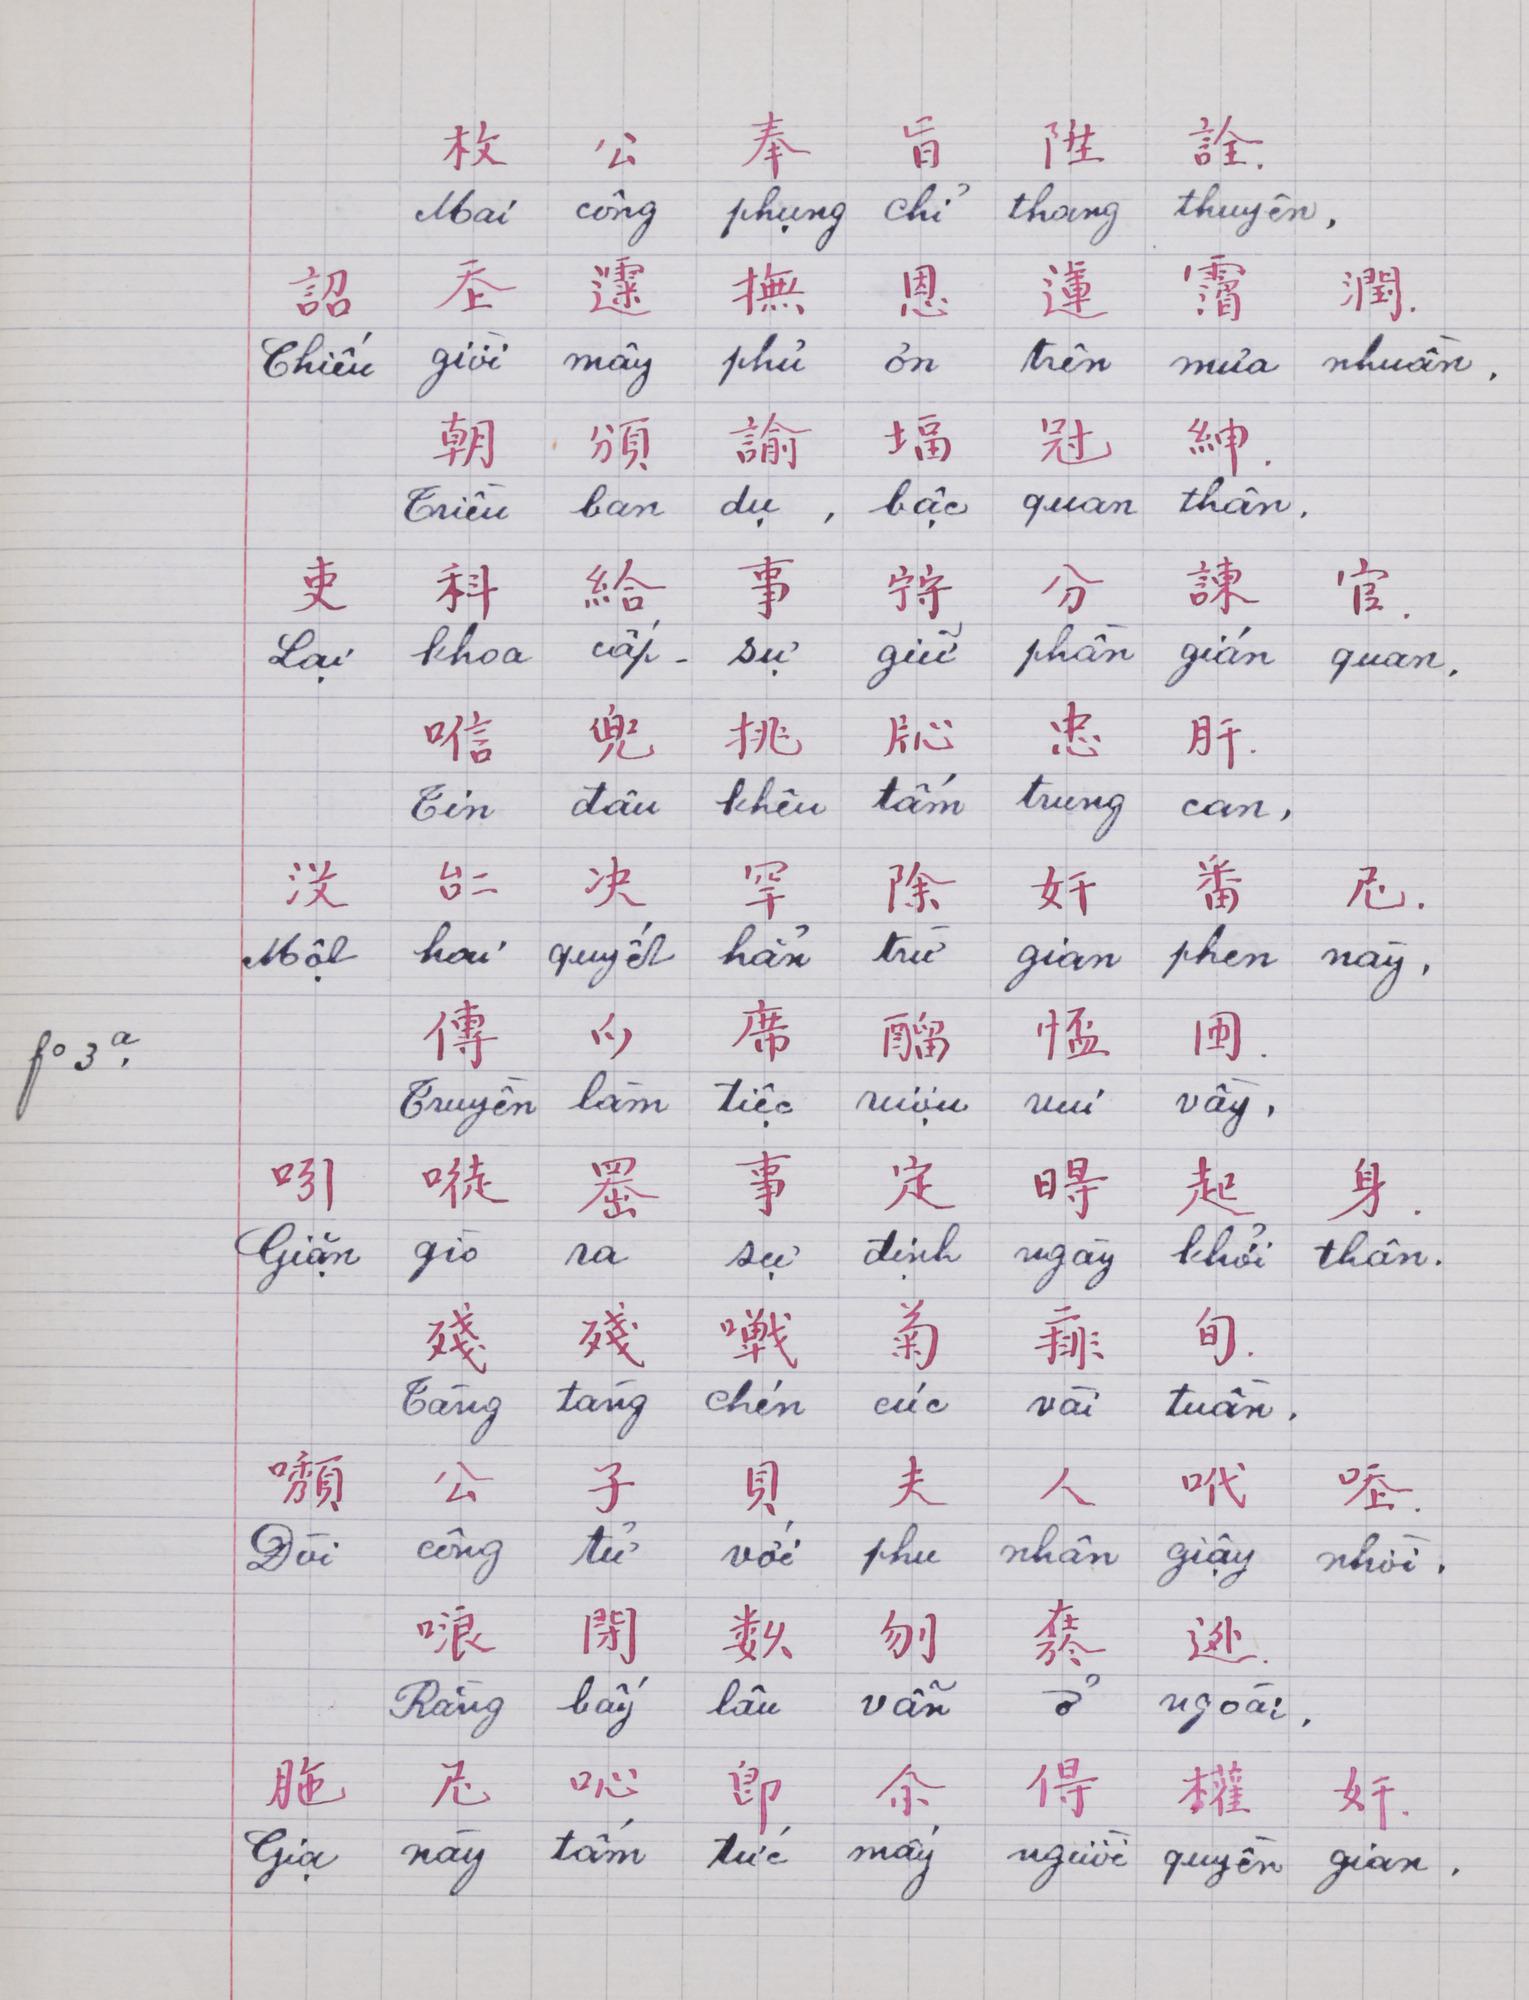 枚 公 奉 旨 陞 詮.
Mai công phụng chỉ thang thuyên,
詔 𡗶 𩄲 撫 恩 𨕭 𩅹 潤.
Chiếu giời mây phủ ơn trên mưa nhuần,
朝 頒 諭 堛 冠 紳.
Triều ban dụ, bậc quan thân,
吏 科 給 事 𡨹 分 諫 官.
Lại khoa cấp - sự giữ phần gián quan,
㗂 兜 挑 𱥯 忠 肝.
Tin đâu khêu tấm trung can,
没 𠄩 决 罕 除 奸 番 尼.
Một hai quyết hẳn trừ gian phen này,
fº 3ª.
傳 𬈋 席 醪 𢝙 囲.
Truyền làm tiệc rượu vui vầy,
吲 𠺕 𠚢 事 定 𣈗 起 身.
Giặn giò ra sự định ngày khởi thân.
殘 殘 𡃹 菊 𨤰 旬.
Tàng tàng chén cúc vài tuần,
𡃊 公 子 貝 夫 人 𠰺 𠳒.
Đòi công tử với phu nhân giậy nhời,
哴 閉 数 刎 𣄒 外.
Rằng bấy lâu vẫn ở ngoài,
𦓅 尼 吣 即 余 得 權 奸.
Giạ này tấm tức mấy người quyền gian,